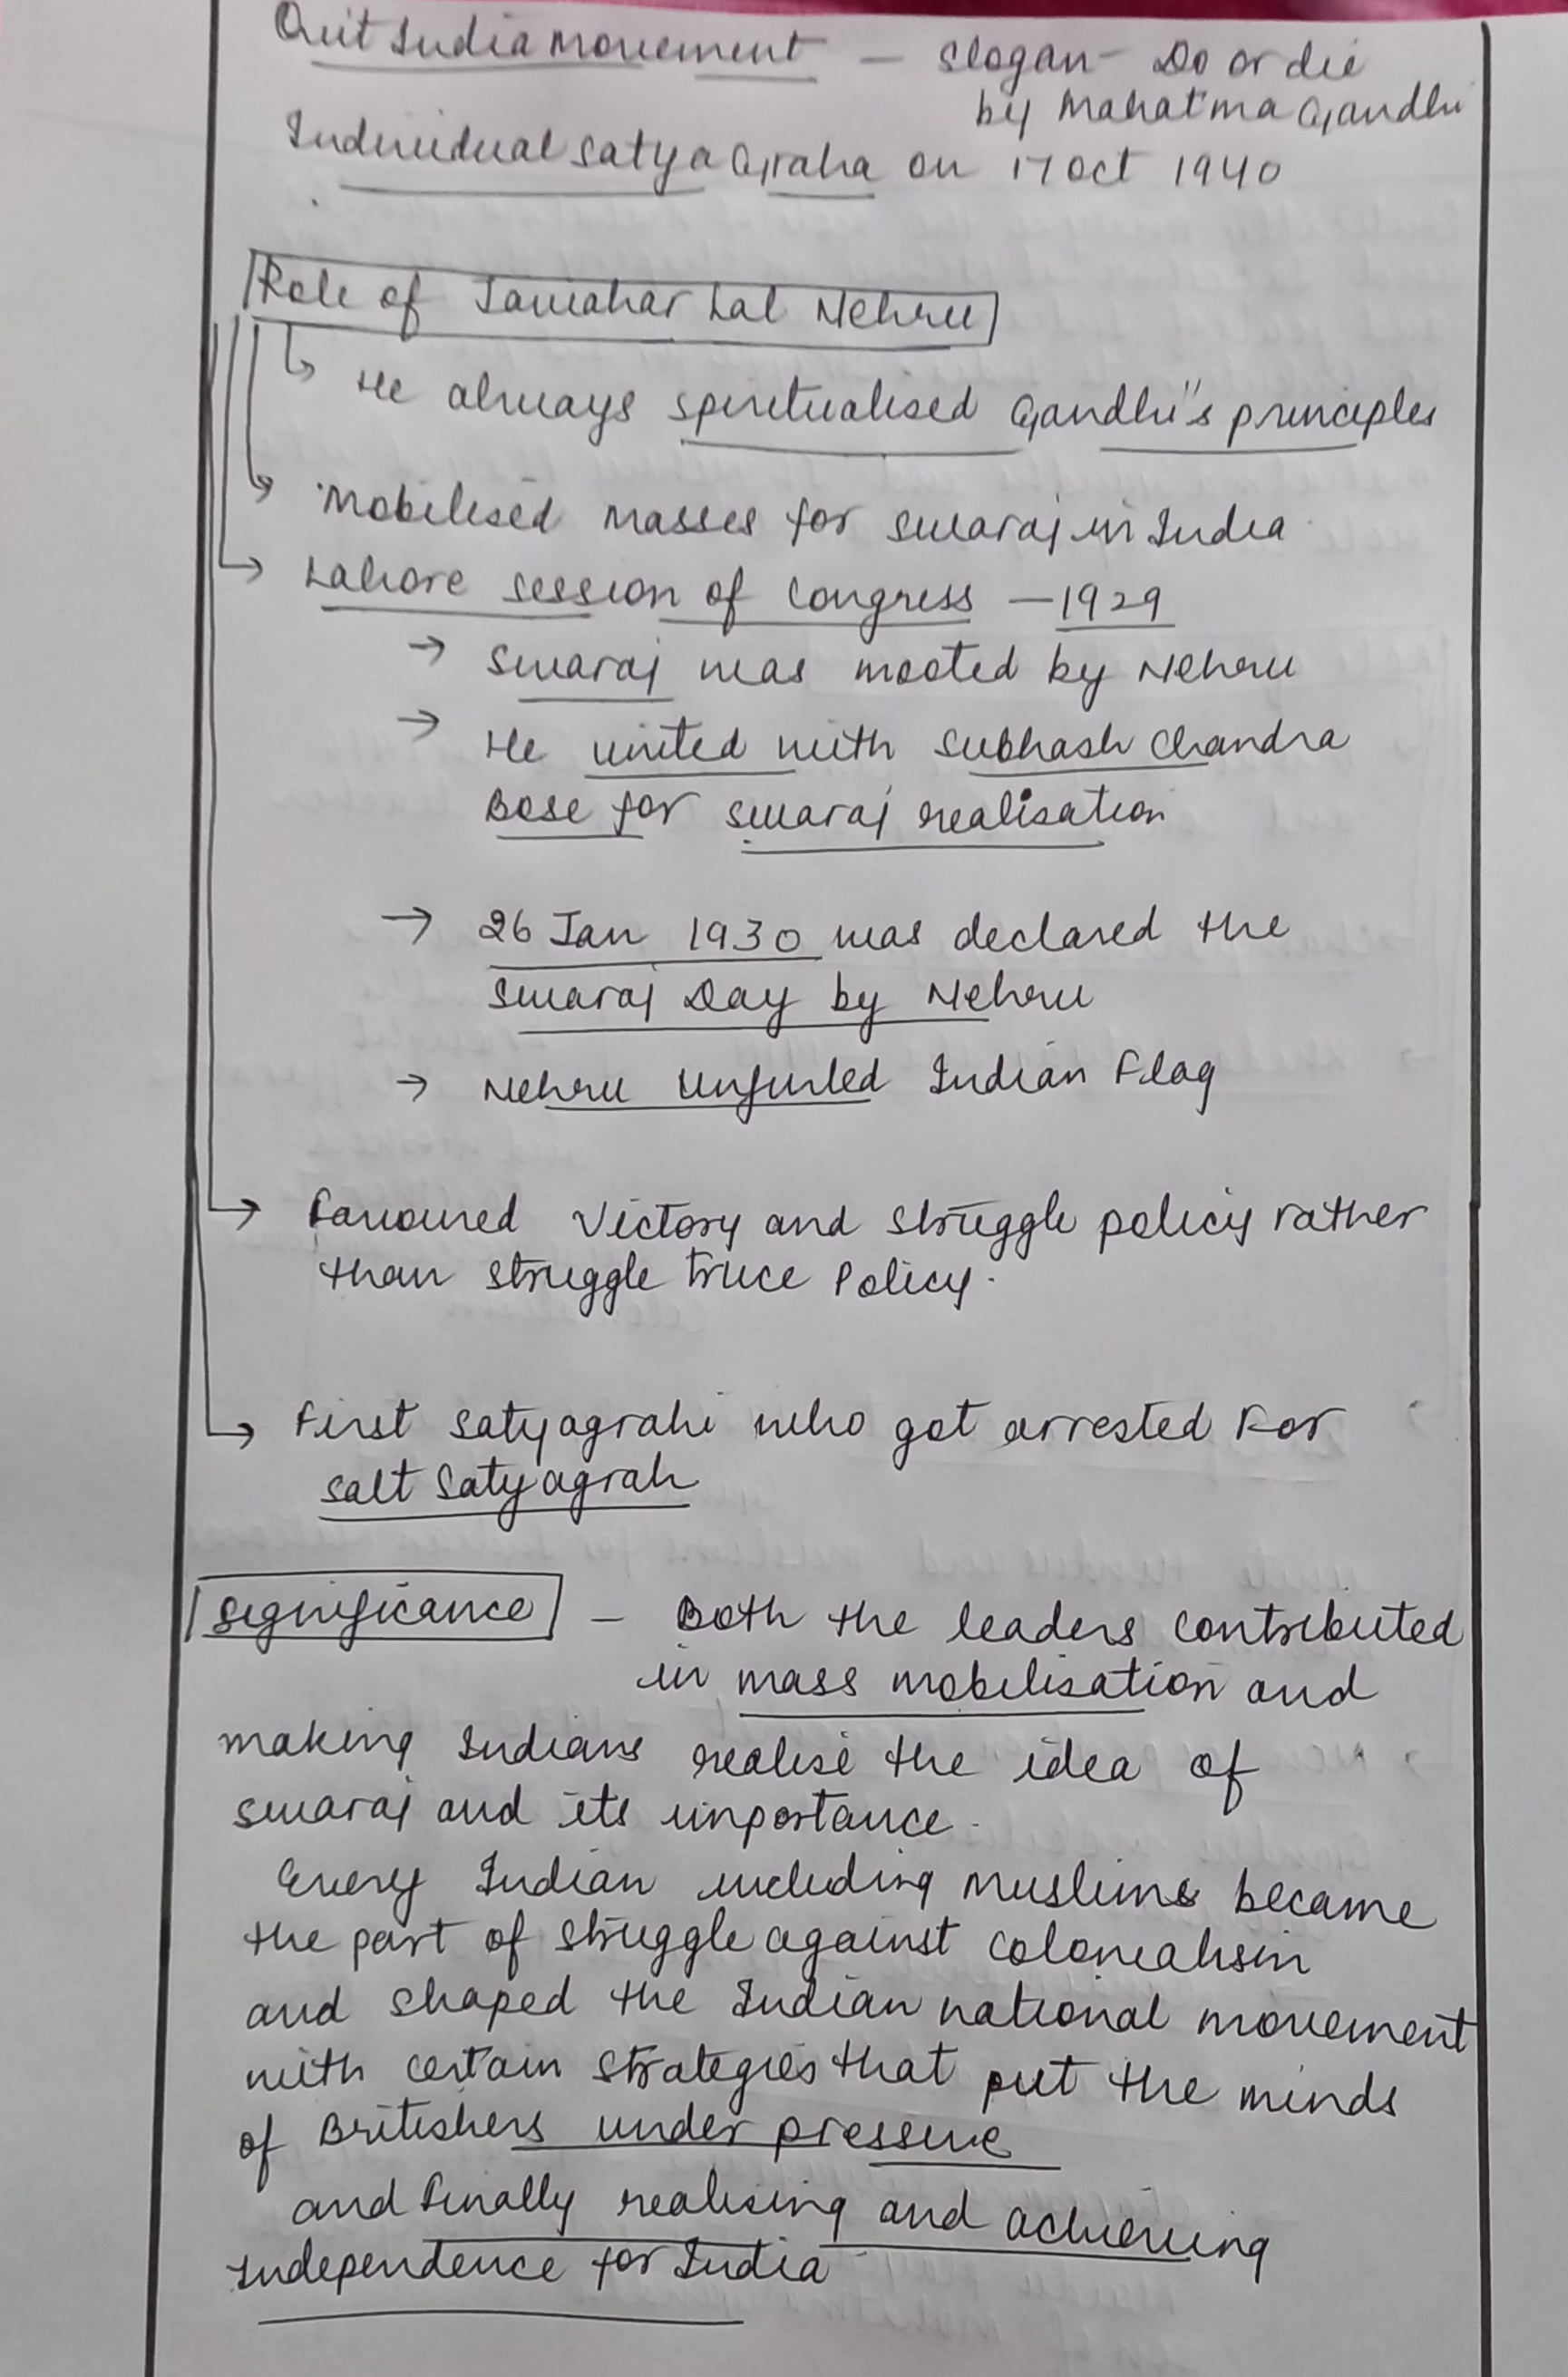 Quit India movement — slogan - Do or die
by Mahatma Gandhi
Individual satyaGraha on 17 Oct 1940
Role of Jawahar Lal Nehru
↳ He always spiritualised Gandhi"s principles
↳ Mobilised masses for swaraj in India
↳ Lahore session of Congress — 1929
→ Swaraj was mooted by Nehru
→ He united with Subhash Chandra
Bose for swaraj realisation
→ 26 Jan 1930 was declared the
Swaraj Day by Nehru
→ Nehru Unfurled Indian Flag
↳ Favoured Victory and struggle policy rather
than struggle truce Policy.
↳ First satyagrahi who got arrested For
Salt Satyagrah
Significance — Both the leaders contributed
in mass mobilisation and
making Indians realise the idea of
swaraj and its importance.
Every Indian including muslims became
the part of struggle against colonialism
and shaped the Indian national movement
with certain strategies that put the minds
of Britishers under pressure
and finally realising and achieving
Independence for India